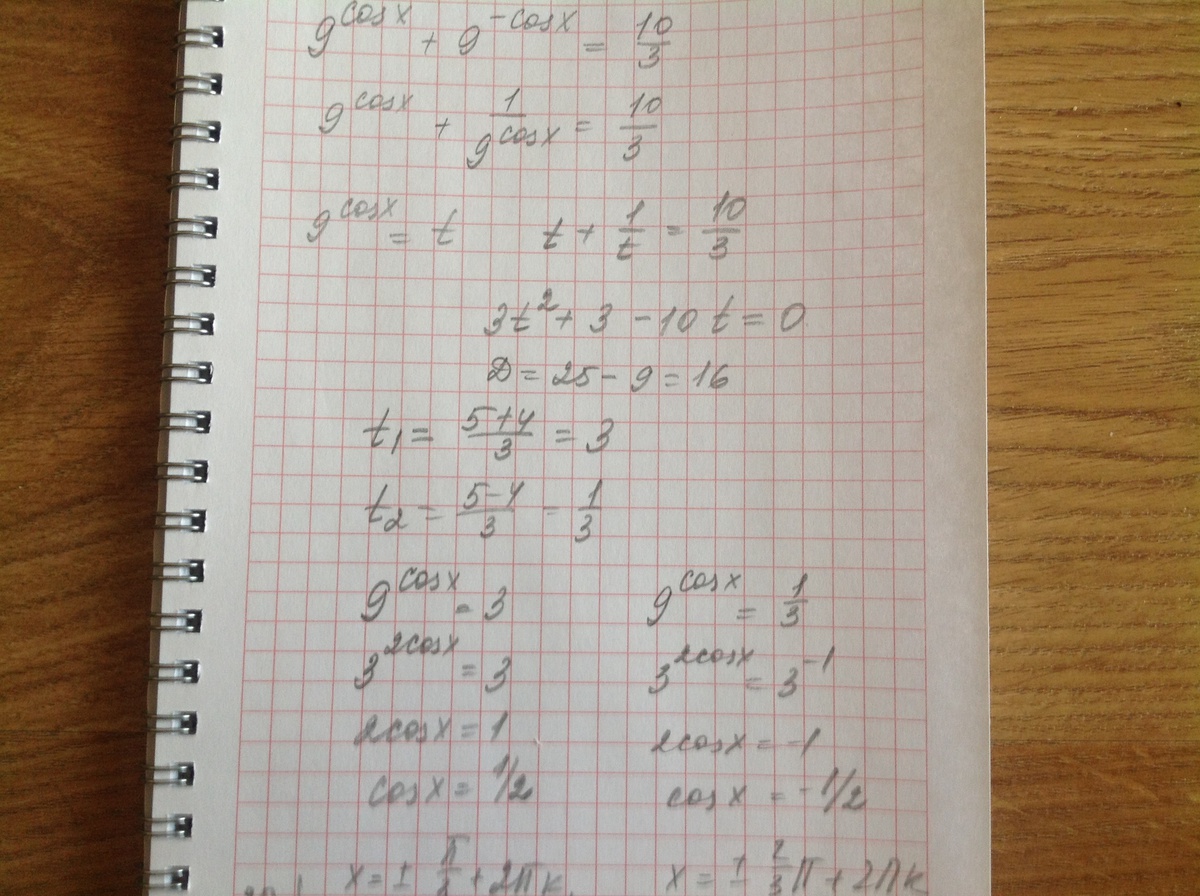 9^cosx + 9^-cosx = 10/3
9^cosx + 1/9^cosx = 10/3
9^cosx = t t + 1/t = 10/3
3t² + 3 - 10t = 0
D = 25 - 9 = 16
t₁ = (5+4)/3 = 3
t₂ = (5-4)/3 = 1/3
9^cosx = 3 9^cosx = 1/3
3^2cosx = 3 3^2cosx = 3^-1
2cosx = 1 2cosx = -1
cosx = 1/2 cosx = -1/2
x = ± π/3 + 2πk, x = ± 2/3 π + 2πk